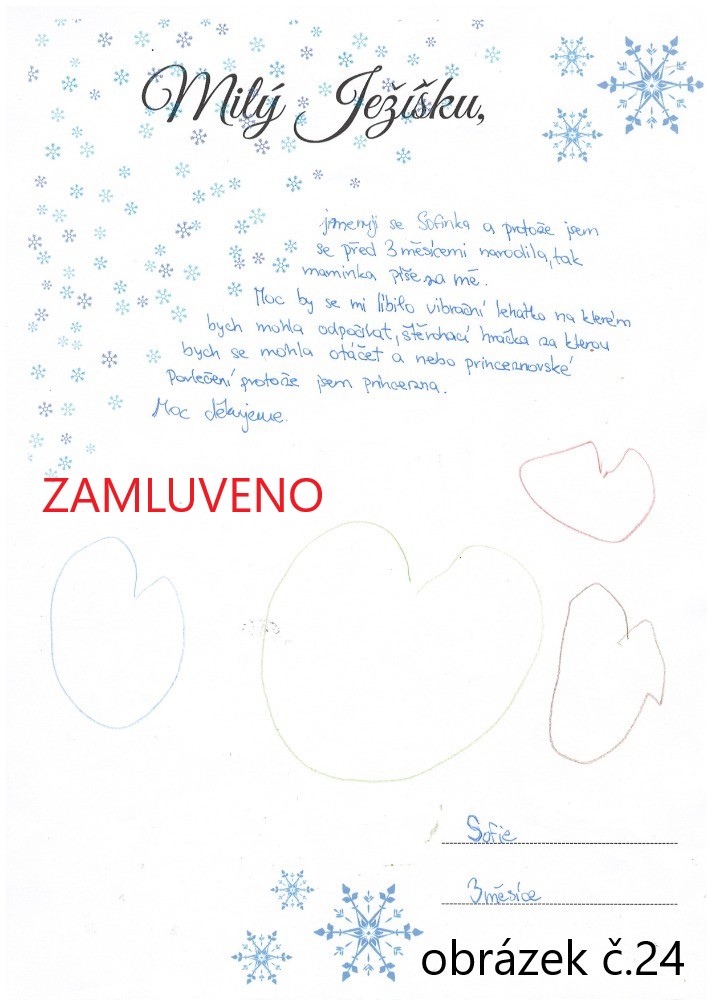 Milý Ježíšku,
jmenuji se Sofinka a protože jsem
se před 3 měsícemi narodila, tak
maminka píše za mě.
Moc by se mi líbilo vibrační lehátko na kterém
bych mohla odpočívat, štěrchací hračka za kterou
bych se mohla otáčet a nebo princeznovské
Povlečení protože jsem princezna.
Moc děkujeme.
ZAMLUVENO
Sofie
3 měsíce
obrázek č.24